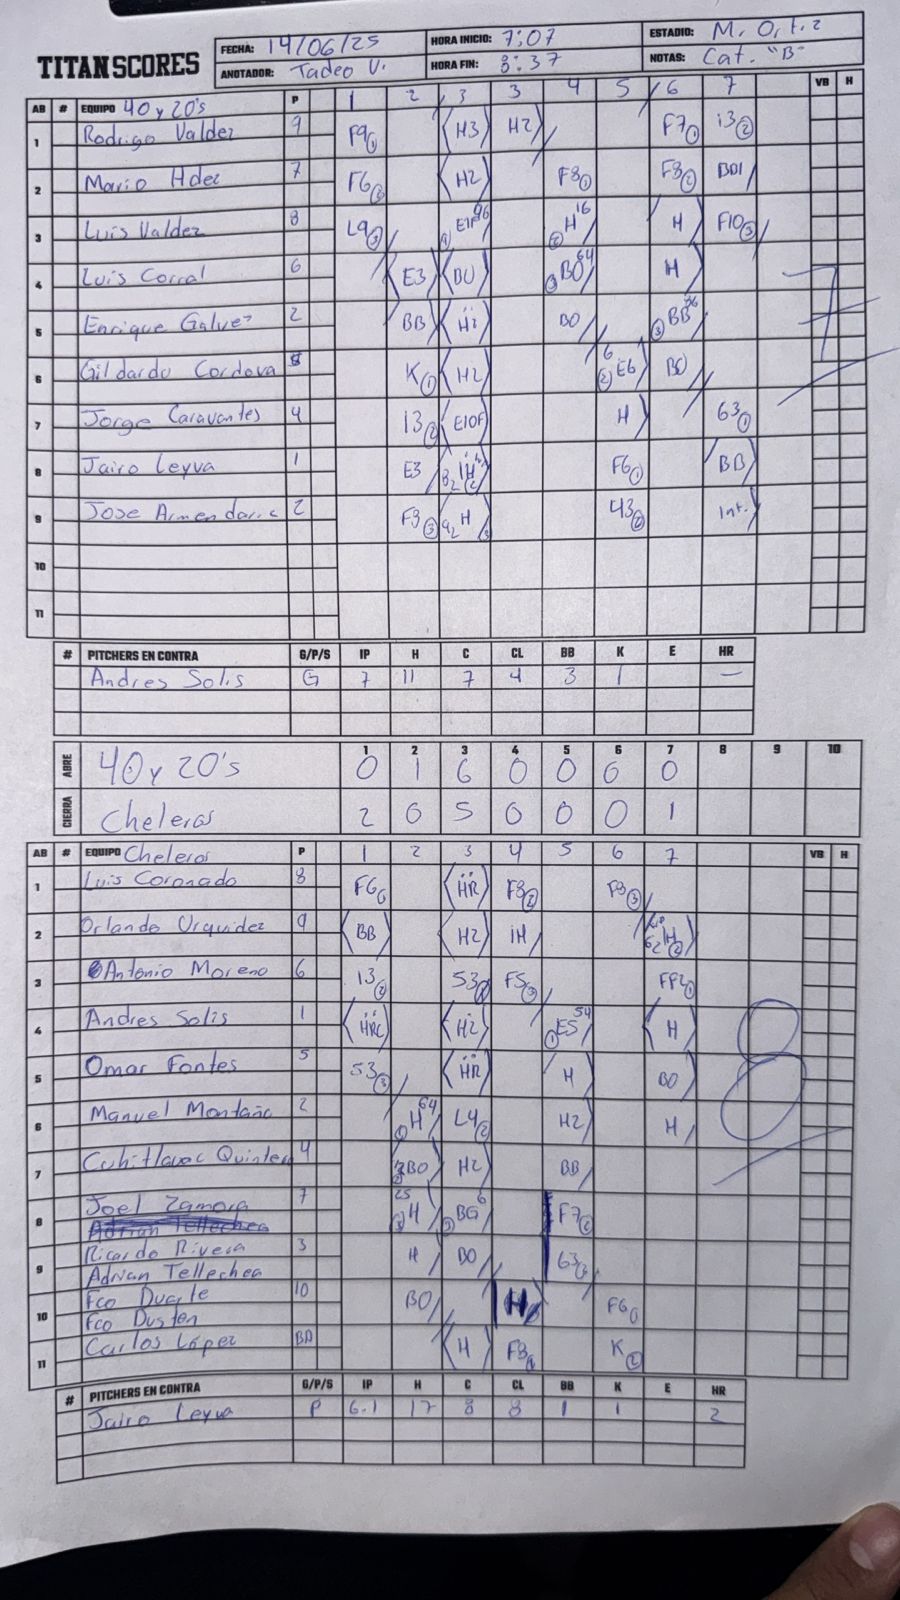 TITAN SCORES
FECHA: 14/06/25 HORA INICIO: 7:07 ESTADIO: M. O, t, z
ANOTADOR: Tadeo V. HORA FIN: 8:37 NOTAS: Cat. "B"
AB # EQUIPO 40 y 20's P 1 2 3 3 4 5 6 7 VB H
1 Rodrigo Valdez 9 F9 1 H3 H2 F7 1 13 2
2 Mario Hdez 7 F6 2 H2 F8 1 F8 2 BO1
3 Luis Valdez 8 L9 3 H 16 H F10 3
4 Luis Corral 6 E3 BO 3 BO 64 H 7
5 Enrique Galvez 2 BB H2 BO 3 BB 36
6 Gildardo Cordova K 1 H2 6 2 E6 BO
7 Jorge Caravantes 4 13 2 E10F H 63 1
8 Jairo Leyva 1 E3 F6 1 BB
9 Jose 2 F3 3 H 43 2 Int.
10
11
# PITCHERS EN CONTRA G/P/S IP H C CL BB K E HR
Andres Solis G 7 11 7 4 3 1 —
1 2 3 4 5 6 7 8 9 10
ABRE 40 y 20's 0 1 6 0 0 0 0
CIERRA Cheleros 2 0 5 0 0 0 1
AB # EQUIPO Cheleros P 1 2 3 4 5 6 7 VB H
1 Luis Coronado 8 F6 1 HR F8 2 F3 3
2 Orlando Urquidez 9 BB H2 1H 1H
3 Antonio Moreno 6 13 2 53 F5 3 FP2 1
4 Andres Solis 1 HRC H2 1 E5 54 H 8
5 Omar Fontes 5 53 3 HR H BO
6 Manuel Montaño 2 1 H 64 L4 2 H2 H
7 4 BO H2 BB
8 Joel Zamora 7 25 3 H 3 BG 6 F7 2
Adrian Tellechea
9 Ricardo Rivera 3 H BO 63 3
Adrian Tellechea
10 Fco Duarte 10 BO H F6 1
Fco
11 Carlos López BD H F8 1 K 2
# PITCHERS EN CONTRA G/P/S IP H C CL BB K E HR
Jairo Leyva P 6.1 17 8 8 1 1 2